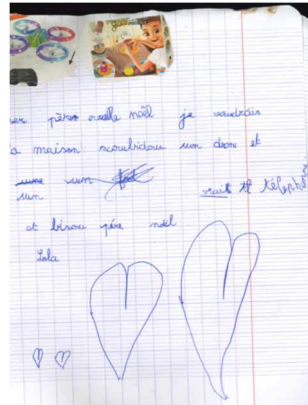 er père ouelle nöel je voudrais
a maison scoubidou un drone et
un un
vrait téléphone
et bisou père noël
Lola